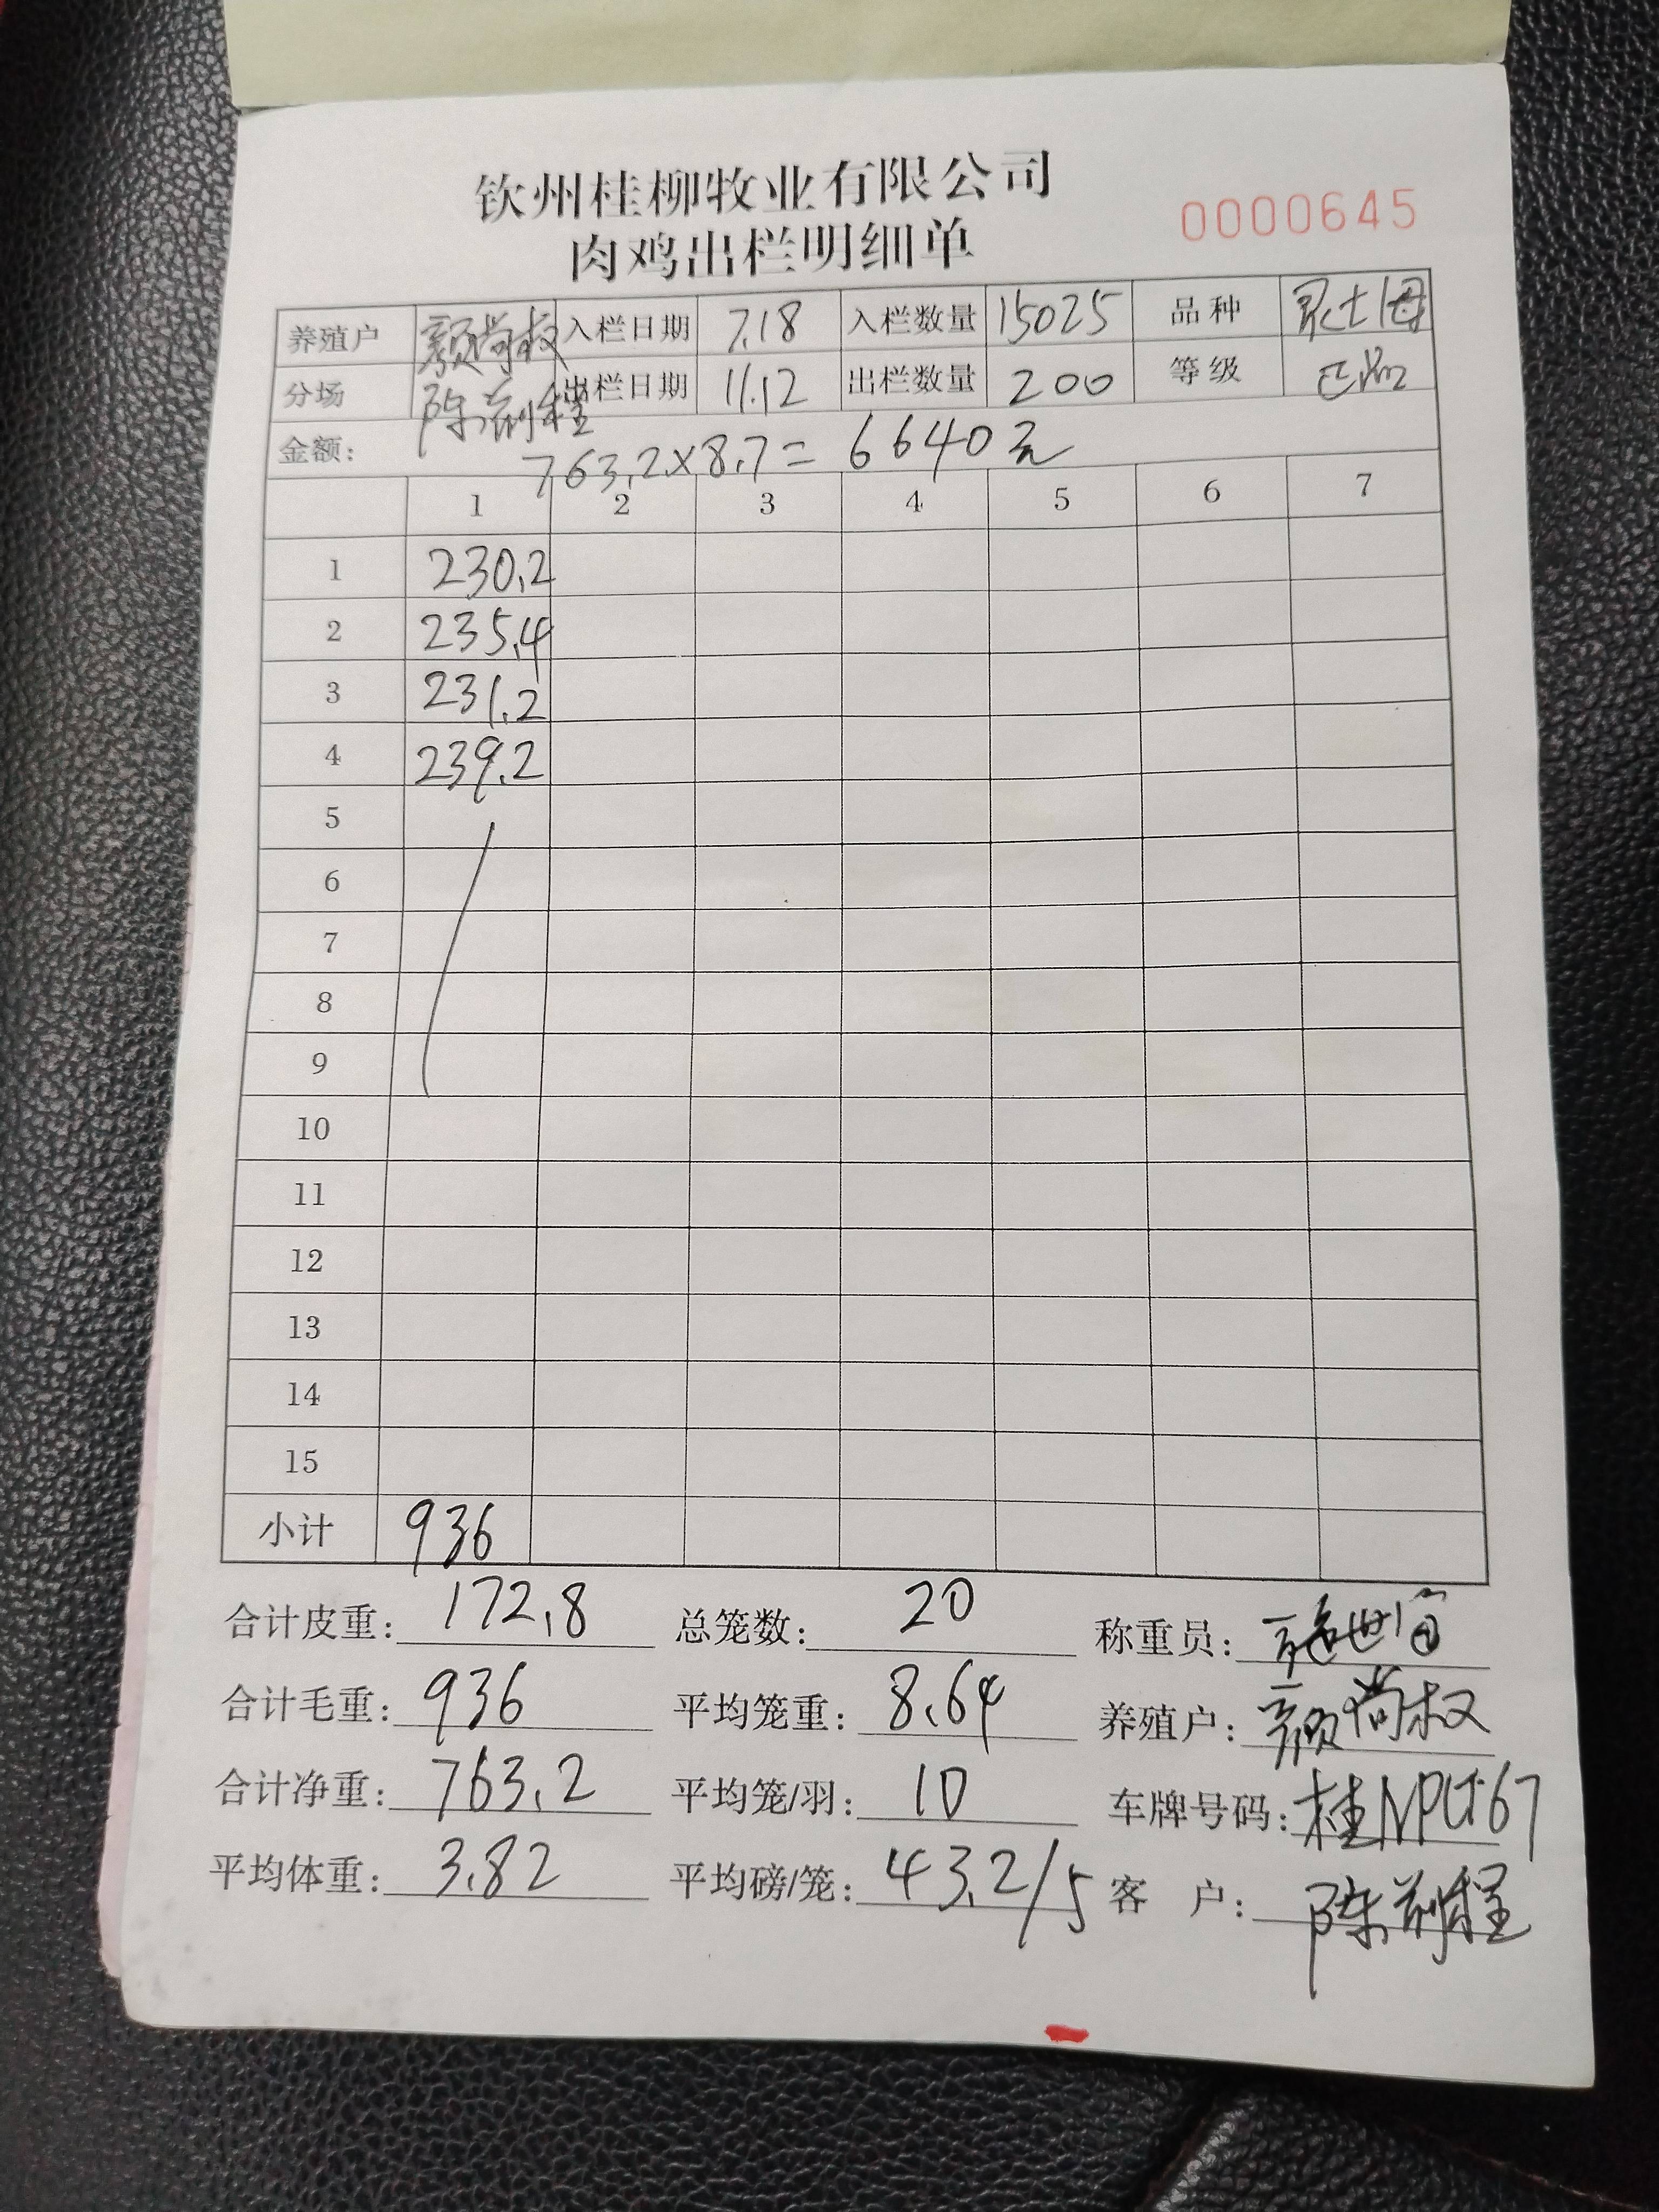 钦州桂柳牧业有限公司
肉鸡出栏明细单
0000645
养殖户 颜尚权 入栏日期 7.18 入栏数量 15025 品种 灵土母
分场 出栏日期 11.12 出栏数量 200 等级
金额: 763.2×8.7=6640元
1 2 3 4 5 6 7
1 230.2
2 235.4
3 231.2
4 239.2
5
6
7
8
9
10
11
12
13
14
15
小计 936
合计皮重: 172.8 总笼数: 20 称重员:
合计毛重: 936 平均笼重: 8.64 养殖户: 颜尚权
合计净重: 763.2 平均笼/羽: 10 车牌号码:
平均体重: 3.82 平均磅/笼: 43.2/5 客户: